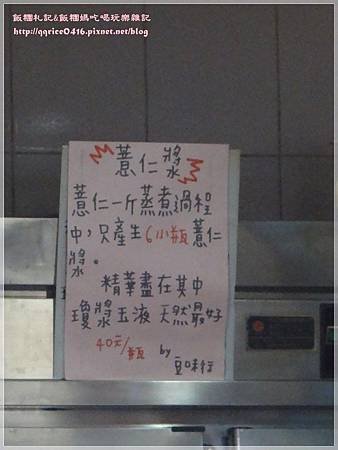 飯糰札記&飯糰媽吃喝玩樂雜記
http://qqrice0416.pixnet.net/blog
薏仁漿
薏仁一斤蒸煮過程
中，只產生6小瓶薏仁
漿。
精華盡在其中
瓊漿玉液 天然最好
40元/瓶
by 豆味行